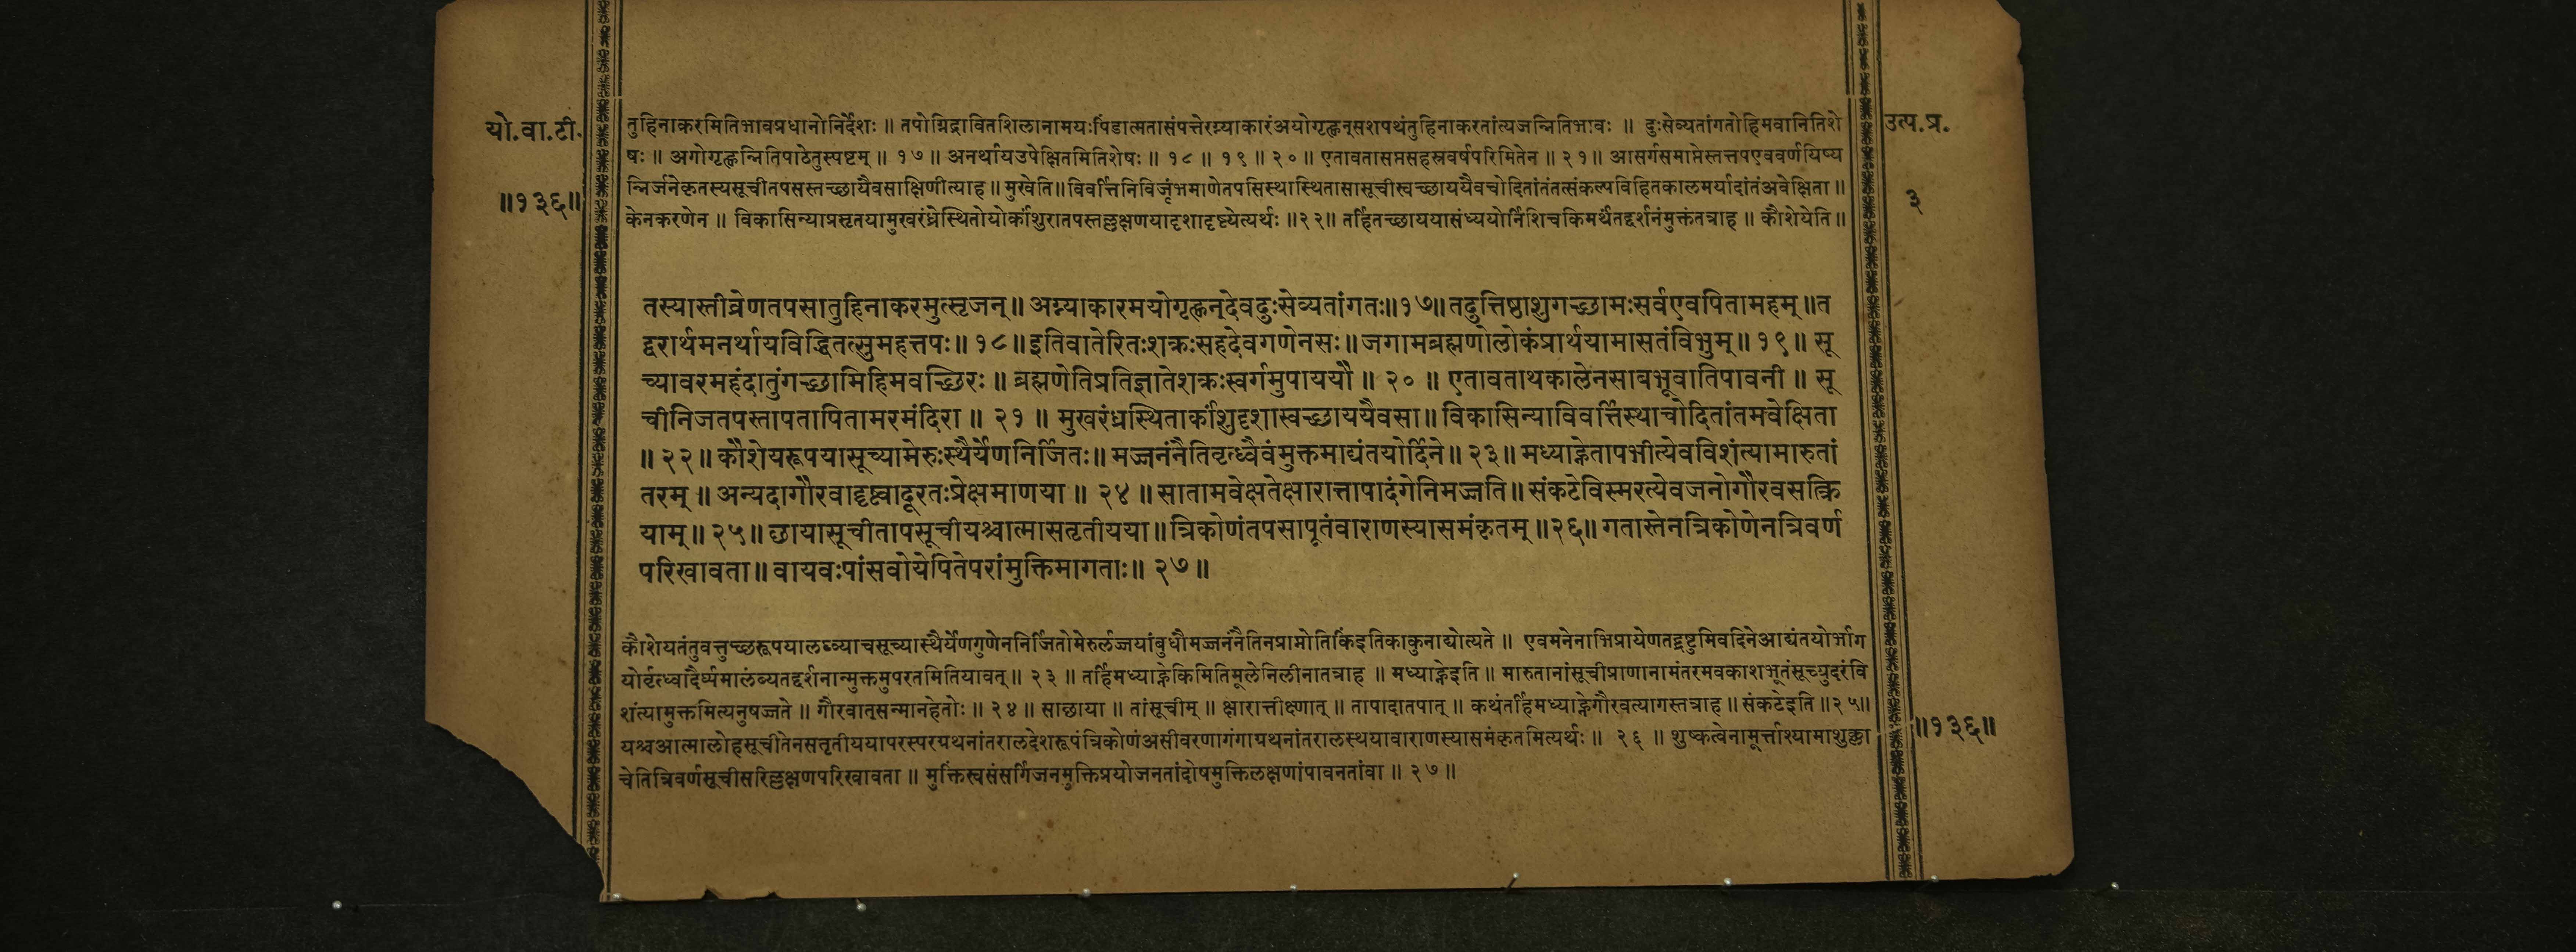 यो.वा.टी.
॥१३६॥
उत्प.प्र.
३
तुहिनाकरमितिभावप्रधानोनिर्देशः ॥ तपोग्निद्रावितशिलानामयःपिंडात्मतासंपत्तेरग्न्याकारंअयोगृह्णन्सशपथंतुहिनाकरतांत्यजन्नितिभावः ॥ दुःसेव्यतांगतोहिमवानितिशे
षः ॥ अगोगृह्णन्नितिपाठेतुस्पष्टम् ॥ १७ ॥ अनर्थायउपेक्षितमितिशेषः ॥ १८ ॥ १९ ॥ २० ॥ एतावतासप्तसहस्रवर्षपरिमितेन ॥ २१ ॥ आसर्गसमाप्तेस्तत्तपएववर्णयिष्य
न्निर्जनेकृतस्यसूचीतपसस्तच्छायैवसाक्षिणीत्याह ॥ मुखेति॥ विवर्त्तिनिविजृंभमाणेतपसिस्थास्थितासासूचीस्वच्छाययैवचोदितांतंतत्संकल्पविहितकालमर्यादांतंअवेक्षिता ॥
केनकरणेन ॥ विकासिन्याप्रसृतयामुखरंध्रेस्थितोयोर्कांशुरातपस्तल्लक्षणयादृशादृष्ट्येत्यर्थः ॥२२॥ तर्हितच्छाययासंध्ययोर्निशिचकिमर्थंतद्दर्शनंमुक्तंतत्राह ॥ कौशेयेति ॥
तस्यास्तीव्रेणतपसातुहिनाकरमुत्सृजन् ॥ अग्न्याकारमयोगृह्णन्देवदुःसेव्यतांगतः॥१७॥ तदुत्तिष्ठाशुगच्छामःसर्वएवपितामहम् ॥त
द्वरार्थमनर्थायविद्धितत्सुमहत्तपः॥ १८॥ इतिवातेरितःशक्रःसहदेवगणेनसः॥ जगामब्रह्मणोलोकंप्रार्थयामासतंविभुम् ॥ १९॥ सू
च्यावरमहंदातुंगच्छामिहिमवच्छिरः ॥ ब्रह्मणेतिप्रतिज्ञातेशक्रःस्वर्गमुपाययौ ॥ २० ॥ एतावताथकालेनसाबभूवातिपावनी ॥ सू
चीनिजतपस्तापतापितामरमंदिरा ॥ २१ ॥ मुखरंध्रस्थितार्कांशुदृशास्वच्छाययैवसा॥ विकासिन्याविवर्त्तिस्थाचोदितांतमवेक्षिता
॥ २२॥ कौशेयरूपयासूच्यामेरुःस्थैर्येणनिर्जितः॥ मज्जनंनैतिवृत्ध्वैवंमुक्तमाद्यंतयोर्दिने॥ २३॥ मध्याह्नेतापभीत्येवविशंत्यामारुतां
तरम् ॥ अन्यदागौरवाद्दृष्ट्वादूरतःप्रेक्षमाणया ॥ २४ ॥ सातामवेक्षतेक्षारात्तापादंगेनिमज्जति॥ संकटेविस्मरत्येवजनोगौरवसत्क्रि
याम्॥ २५॥ छायासूचीतापसूचीयश्चात्मासतृतीयया॥ त्रिकोणंतपसापूतंवाराणस्यासमंकृतम् ॥२६॥ गतास्तेनत्रिकोणेनत्रिवर्ण
परिखावता॥ वायवःपांसवोयेपितेपरांमुक्तिमागताः॥ २७॥
कौशेयतंतुवत्तुच्छरूपयालघ्व्याचसूच्यास्थैर्येणगुणेननिर्जितोमेरुर्लज्जयांबुधौमज्जनंनैतिनप्राप्नोतिकिंइतिकाकुनाद्योत्यते ॥ एवमनेनाभिप्रायेणतद्द्रष्टुमिवदिनेआद्यंतयोर्भाग
योर्वृत्ध्वादैर्घ्यमालंब्यतद्दर्शनान्मुक्तमुपरतमितियावत् ॥ २३ ॥ तर्हिमध्याह्नेकिमितिमूलेनिलीनातत्राह ॥ मध्याह्नेइति ॥ मारुतानांसूचीप्राणानामंतरमवकाशभूतंसूच्युदरंवि
शंत्यामुक्तमित्यनुषज्जते ॥ गौरवात्सन्मानहेतोः ॥ २४ ॥ साछाया ॥ तांसूचीम् ॥ क्षारात्तीक्ष्णात् ॥ तापादातपात् ॥ कथंतर्हिमध्याह्नेगौरवत्यागस्तत्राह ॥ संकटेइति ॥२५॥
यश्चआत्मालोहसूचीतेनसतृतीययापरस्परग्रथनांतरालदेशरूपंत्रिकोणंअसीवरणागंगाग्रथनांतरालस्थयावाराणस्यासमंकृतमित्यर्थः ॥ २६ ॥ शुष्कत्वेनामूर्त्ताश्यामाशुक्ला
चेतित्रिवर्णसूचीसरिल्लक्षणपरिखावता ॥ मुक्तिस्वसंसर्गिजनमुक्तिप्रयोजनतांदोषमुक्तिलक्षणांपावनतांवा ॥ २७ ॥
॥१३६॥